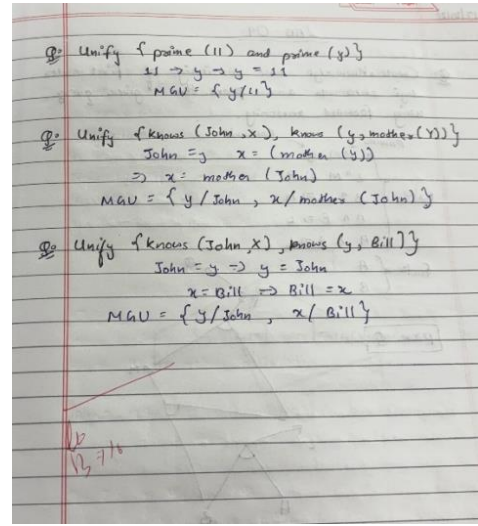 Q: Unify {prime (11) and prime (y)}
11 → y → y = 11
MGU = {y/11}
Q: Unify {knows (John, x), knows (y, mother(y))}
John = y x = (mother (y))
⇒ x = mother (John)
MGU = {y / John , x/mother (John)}
Q: Unify {knows (John, X), knows (y, Bill)}
John = y → y = John
x = Bill ⇒ Bill = x
MGU = {y/John , x/ Bill}